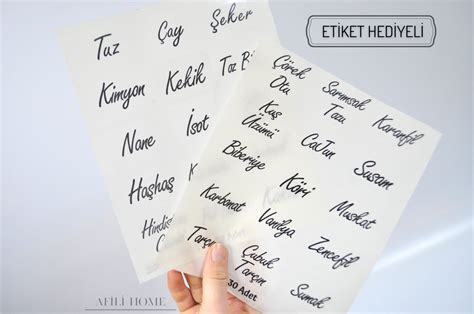 ETİKET HEDİYELİ
Tuz Çay Şeker
Kimyon Kekik Toz B
Nane İsot
Haşhaş
Hindis
Çörek Otu Sarımsak Tozu Karanfil
Kuş Üzümü CaJun Susam
Biberiye Köri Muskat
Karbonat Vanilya Zencefil
Tarçın Çubuk Tarçın Sumak
30 Adet
AFİLİ HOME